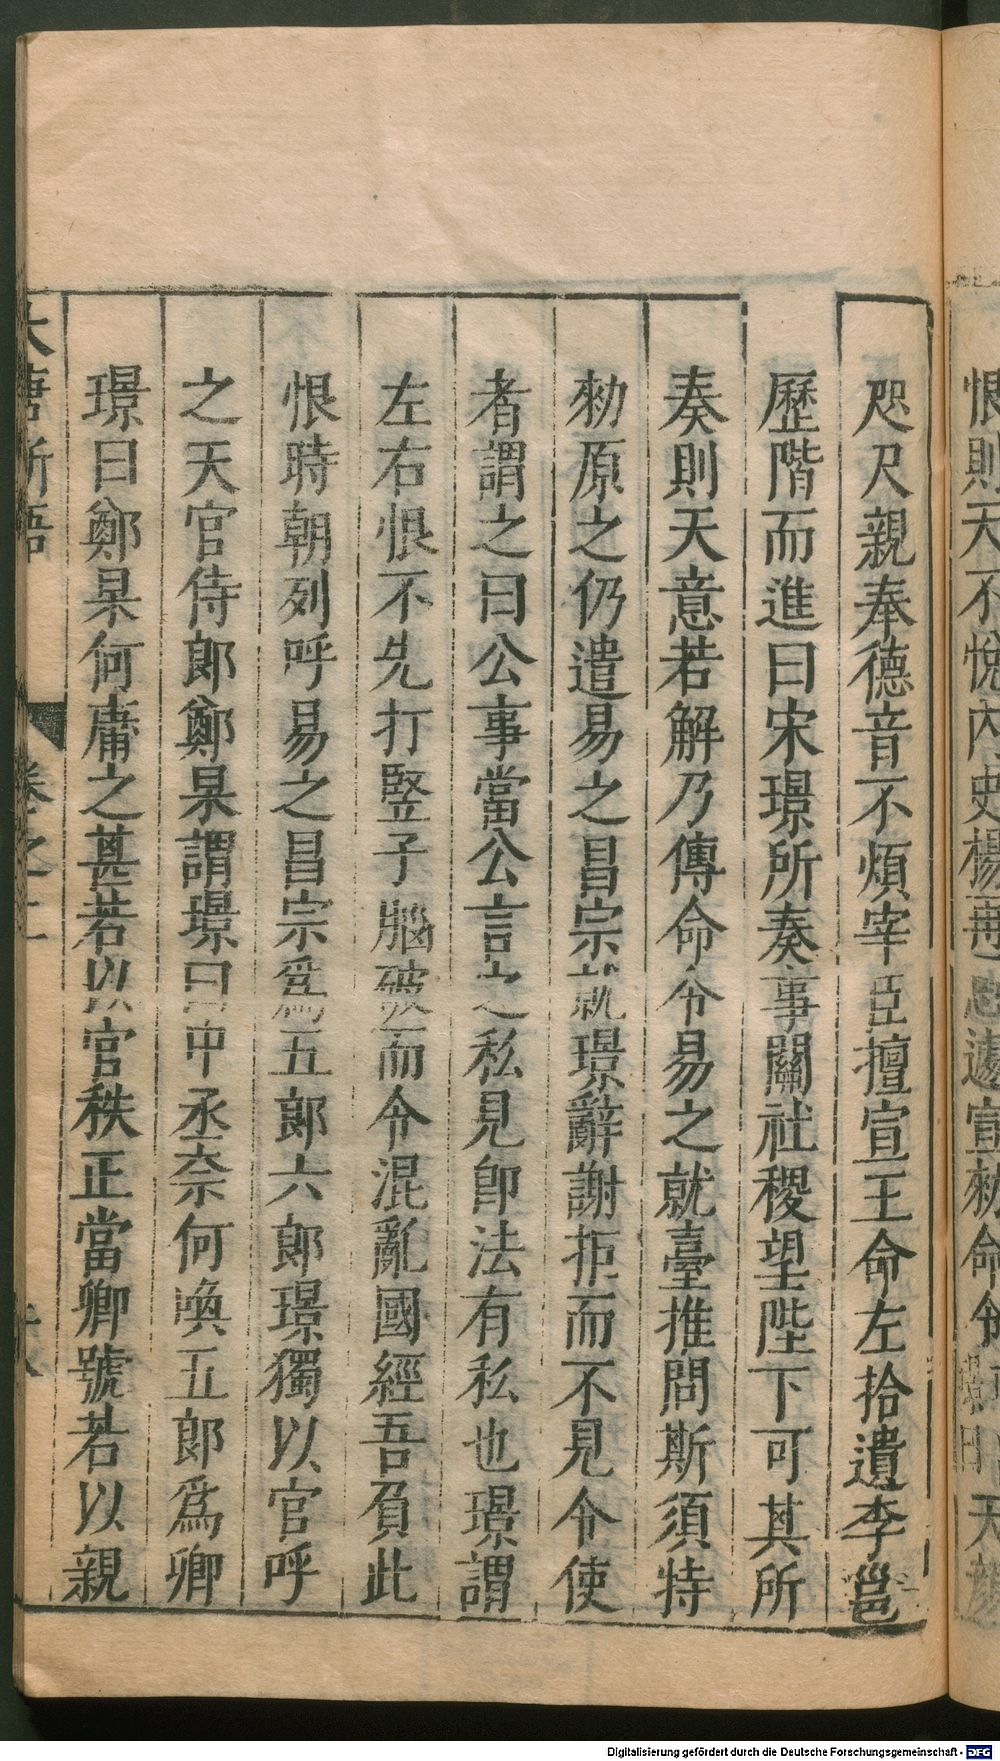 恨則天不悅內史楊再思遽宣勑命令璟曰天顏
咫尺親奉德音不煩宰臣擅宣王命左拾遺李邕
歷階而進曰宋璟所奏事關社稷望陛下可其所
奏則天意若解乃傳命令易之就臺推問斯須特
勑原之仍遣易之昌宗就璟辭謝拒而不見令使
者謂之曰公事當公言之私見卽法有私也璟謂
左右恨不先打竪子腦破而令混亂國經吾負此
恨時朝列呼易之昌宗爲五郎六郎璟獨以官呼
之天官侍郎鄭杲謂璟曰中丞奈何喚五郎爲卿
璟曰鄭杲何庸之甚若以官秩正當卿號若以親
大唐新語 卷之二
Digitalisierung gefördert durch die Deutsche Forschungsgemeinschaft - DFG